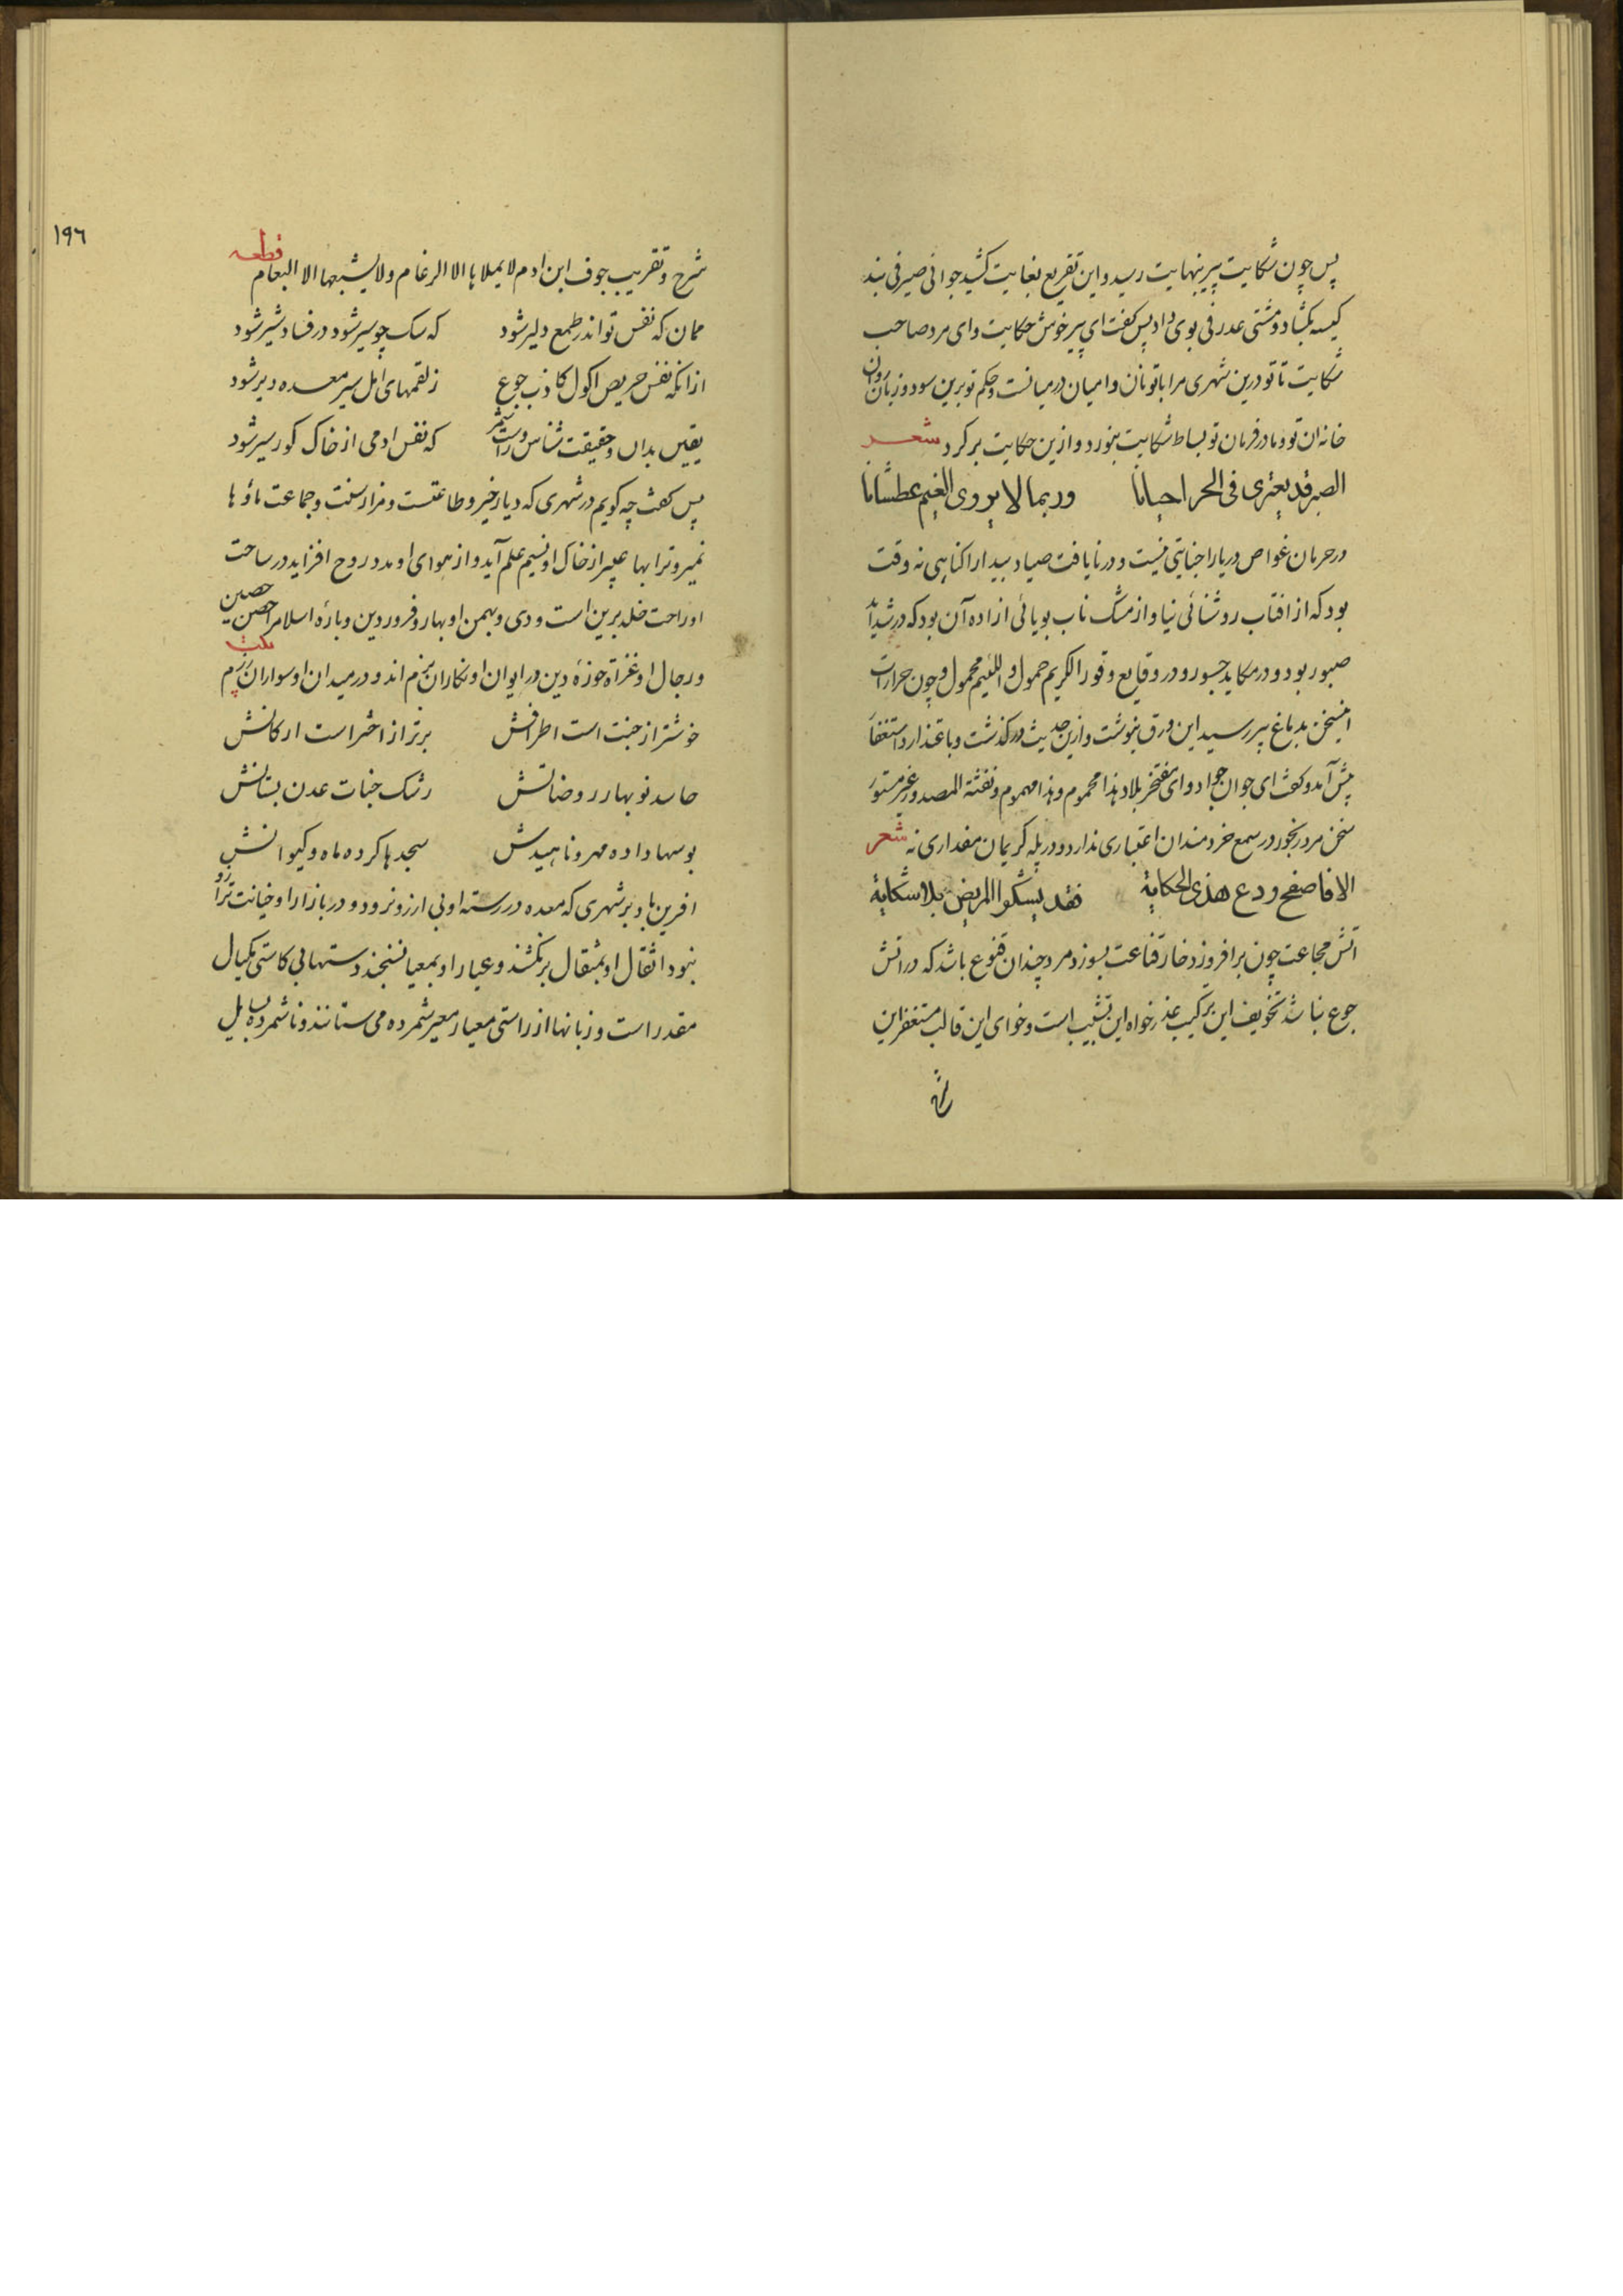 پس چون شکایت پیر بنهایت رسید و این تقریع بغایت کشید جوانی صیرفی بند
کیسه بکشاد و مشتی عدرفی بوی داد پس کفت ای پیر خوش حکایت و ای مرد صاحب
شکایت تا تو درین شهری مرا با تو نان و امیان در میانست و حکم تو برین سود و زیان روان
خانه ان تو و ما در فرمان تو بساط شکایت بنورد و ازین حکایت برکرد شعر
الصبر قد یعتری فی الحر احیانا وربما لا یروی الغیم عطشانا
در حرمان غواص دریا را جنایتی نیست و در نایافت صیاد بیدا را کناهی نه وقت
بود که از افتاب روشنائی نیاو از مشک ناب بویائی ازاده آن بود که در شداید
صبور بود و در مکاید جسور و در وقایع وقور الکریم حمول و اللئیم محمول و چون حرارت
این سخن بدماغ پیر رسید این ورق بنوشت و ازین حدیث در کذشت و باعتذار و استغفار
پیش آمد و کفت ای جوان جواد و ای مفتخر بلاد هذا محموم و هذا مهموم و نفثة المصدور غیر مستور
سخن مرد رنجور در سمع خردمندان اعتباری ندارد و در پله کریمان مقداری نه شعر
الا فاصفح ودع هذی الحکایة فقد یشکوا المریض بلا شکایة
آتش مجاعت چون برافروزد خار قناعت بسوزد مرد چندان قنوع باشد که در آتش
جوع نباشد تخویف این ترکیب عذر خواه این تشبیب است و خوای این قالب مستغفر این
شرح
۱۹۶
شرح و تقریب جوف ابن ادم لا یملاها الا الرغام ولا یشبعها الا البغام قطعه
ممان که نفس تو اندر طمع دلیر شود که سک چو سیر شود در فساد شیر شود
از انکه نفس حریص اکول کاذب جوع ز لقمهای امل سیر معده دیر شود
یقین بدان و حقیقت شناس و راست شمر که نفس ادمی از خاک کور سیر شود
پس کفت چه کویم در شهری که دیار خیر و طاعتست و مزار سنت و جماعت ماؤها
نمیر و ترابها عبیر از خاک او نسیم علم آید و از هوای او مدد روح افزاید در ساحت
او راحت خلد برین است و دی و بهمن او بهار و فروردین و باره اسلام را حصن حصین
و رجال او غزاة حوزه دین در ایوان او نکاران بزم اند و در میدان او سواران رزم
خوشتر از جنت است اطرافش برتر از اختر است ارکانش
حاسد نو بهار روضاتش رشک جنات عدن بستانش
بوسها داده مهر و ناهیدش سجدها کرده ماه و کیوانش
افرین باد بر شهری که معده در رسته او بی ارزو نرود و در بازار او خیانت ترازو
نبود اثقال او بمثقال برنکشند و عیار او بمعیار نسنجند دستها بی کاستی مکیال
مقدر است و زبانها از راستی معیار معیر شمرده می ستانند و ناشمرده بسایل